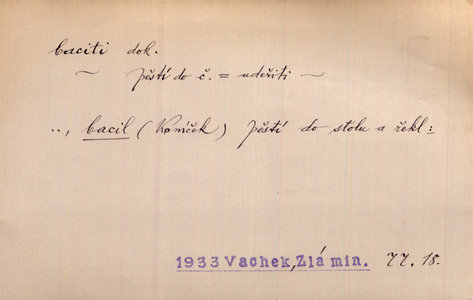 baciti dok.
~ pěstí do č. = udeřiti ~
.., bacil (Komíček) pěstí do stolu a řekl:
1933 Vachek, Zlá min. 77.18.